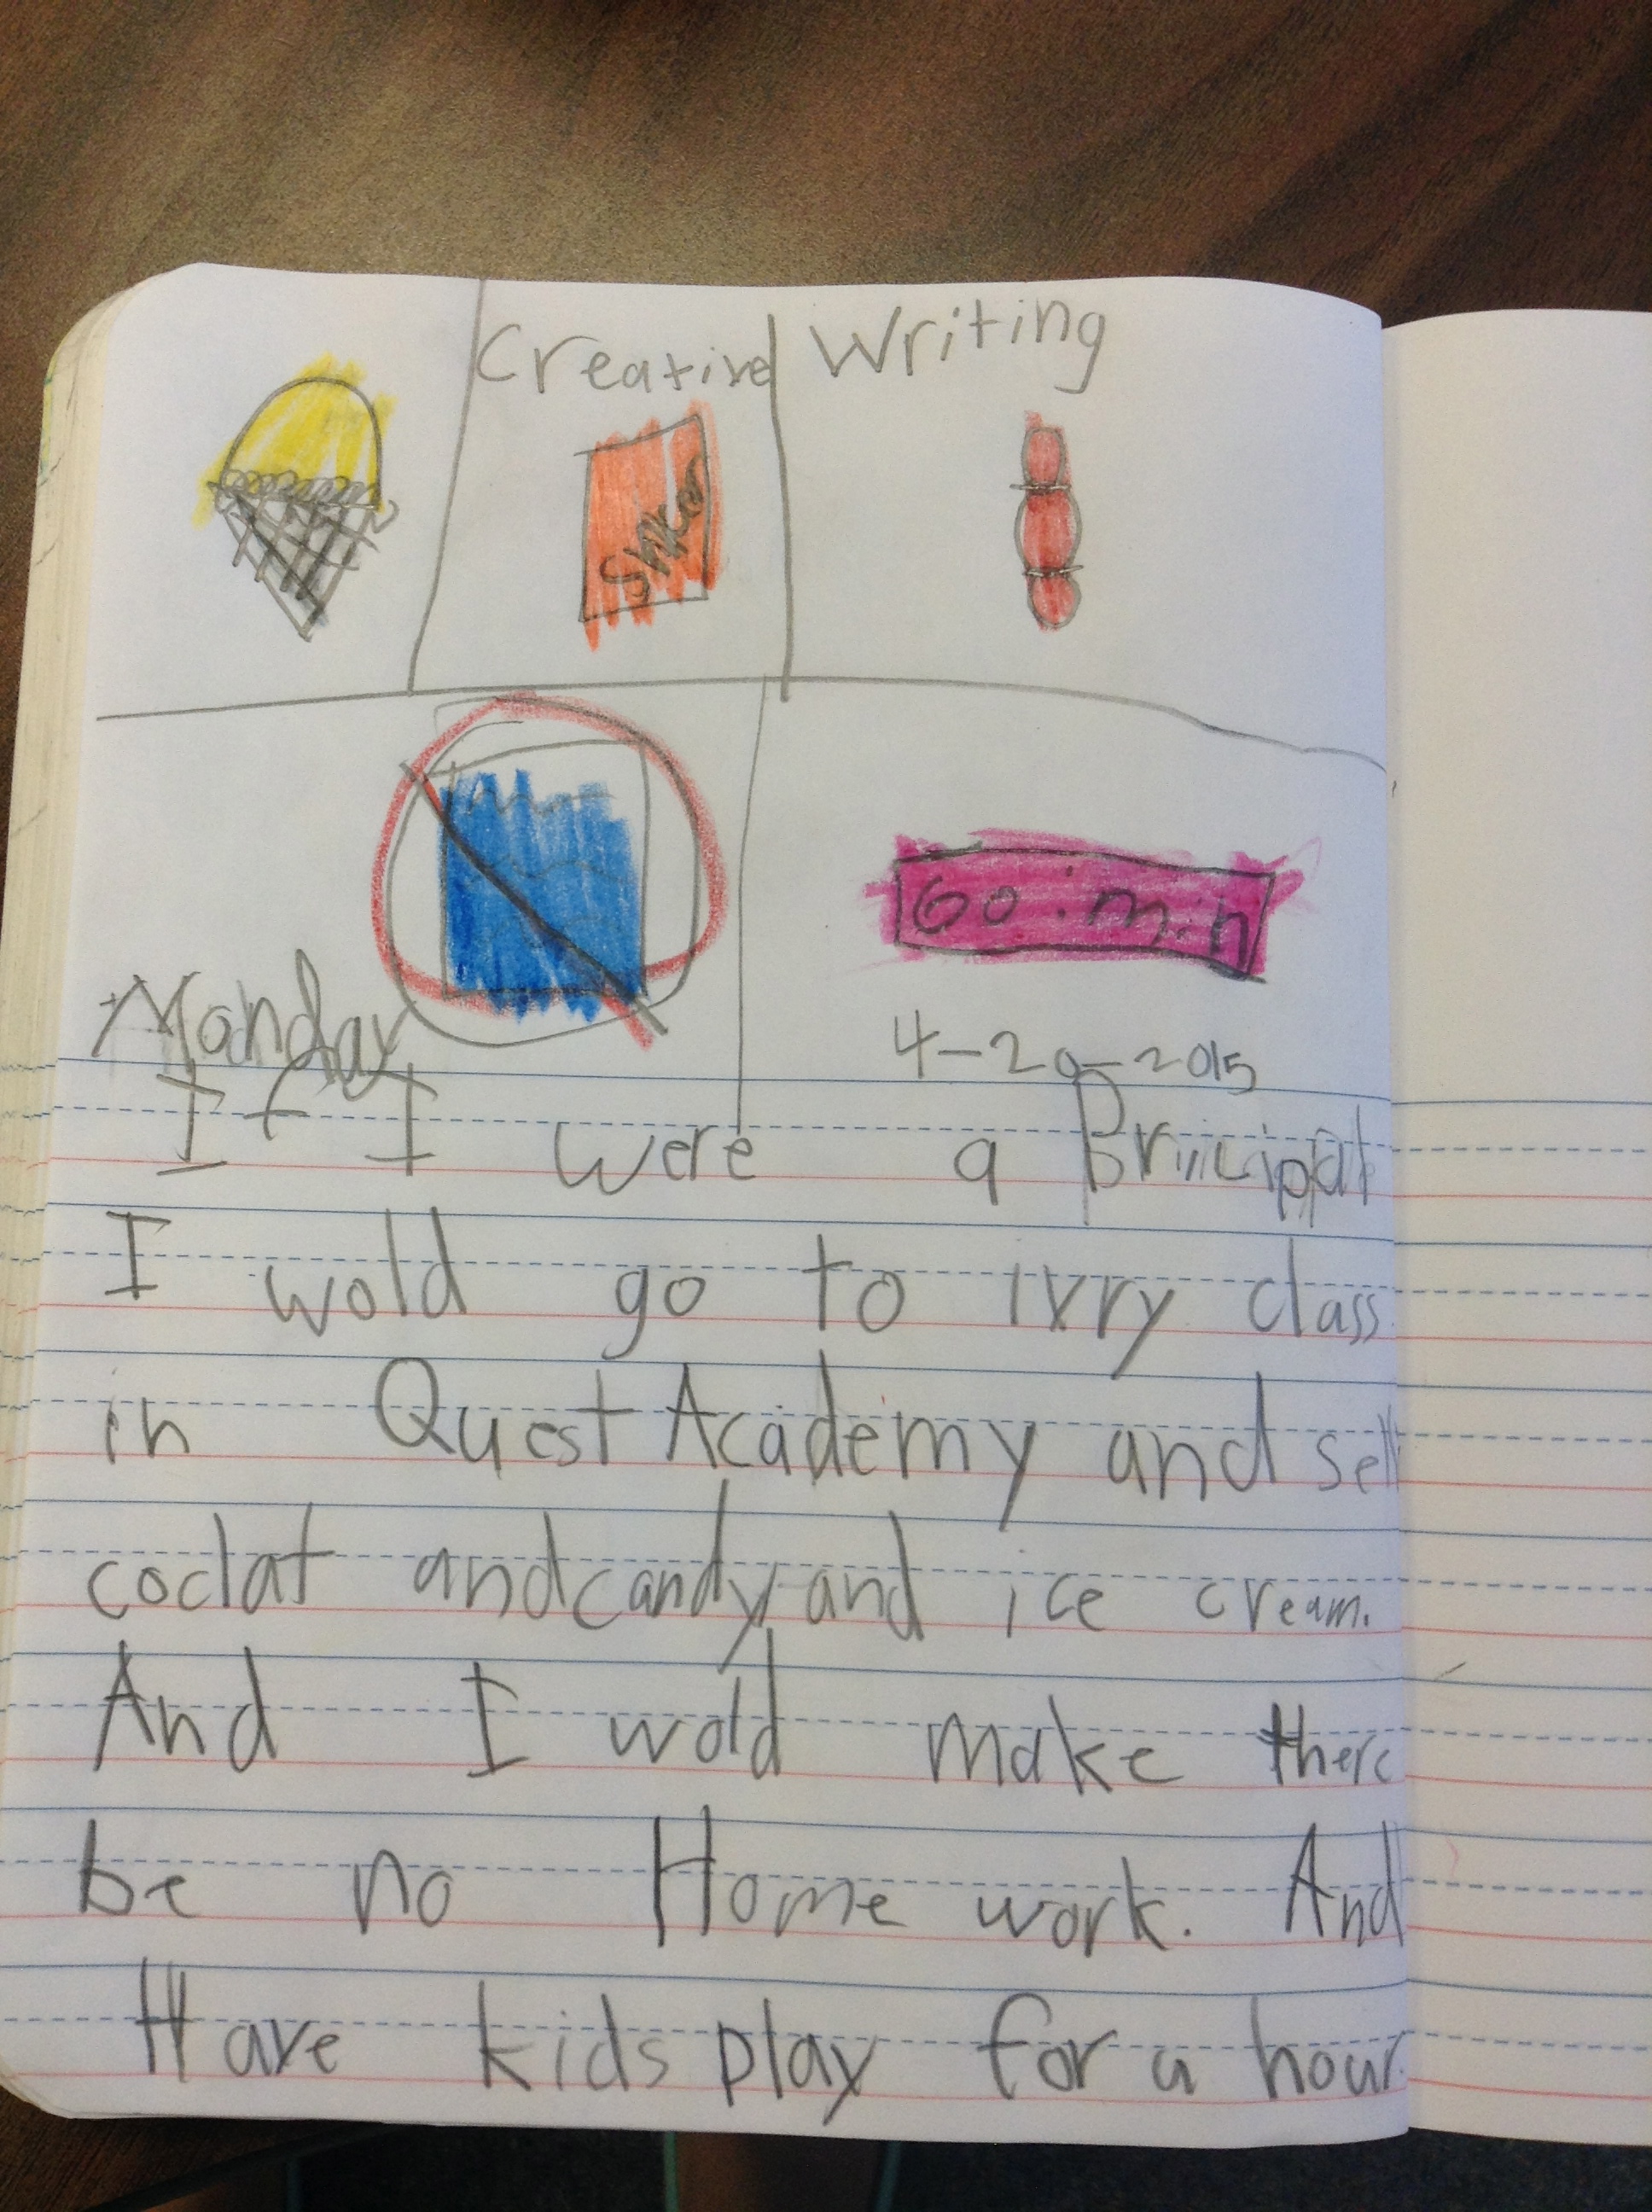 Creative Writing
60:min
Monday
4-20-2015
If I were a Priicipal
I wold go to ivry class
in Quest Academy and sell
coclat and candy and ice cream.
And I wold make there
be no Home work. And
Have kids play for a hour.